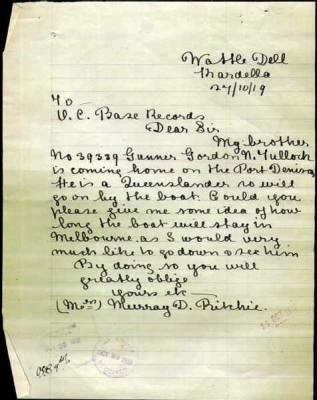 Wattle Dell
Nardella
24/10/19
To
O.C. Base Records
Dear Sir
My brother
No 39339 Gunner Gordon N. Tulloch
is coming home on the Port Denison
He is a Queenslander so will
go on by the boat. Could you
please give me some idea of how
long the boat will stay in
Melbourne, as I would very
much like to go down & see him
By doing so you will
greatly oblige
yours etc
(Mrs) Murray D. Ritchie.